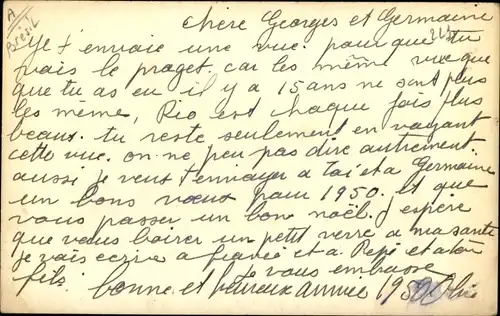 A
Brésil
chère Georges et Germaine
Je t envoie une vue. pour que tu
vois le proget. car les même vue que
que tu as eu il y a 15 ans ne sont plus
les même, Rio est chaque fois plus
beaux. tu reste seulement en voyant
cette vue. on ne peu pas dire autrement.
aussi je veus t envoyer a toi et a Germaine
un bons vœus pour 1950. et que
vous passer un bon noël. J espère
que vous boirer un petit verre a ma santé
je vais ecrire a et a Pepé et a ton
fils. vous embrasse
bonne et heureux année 1950